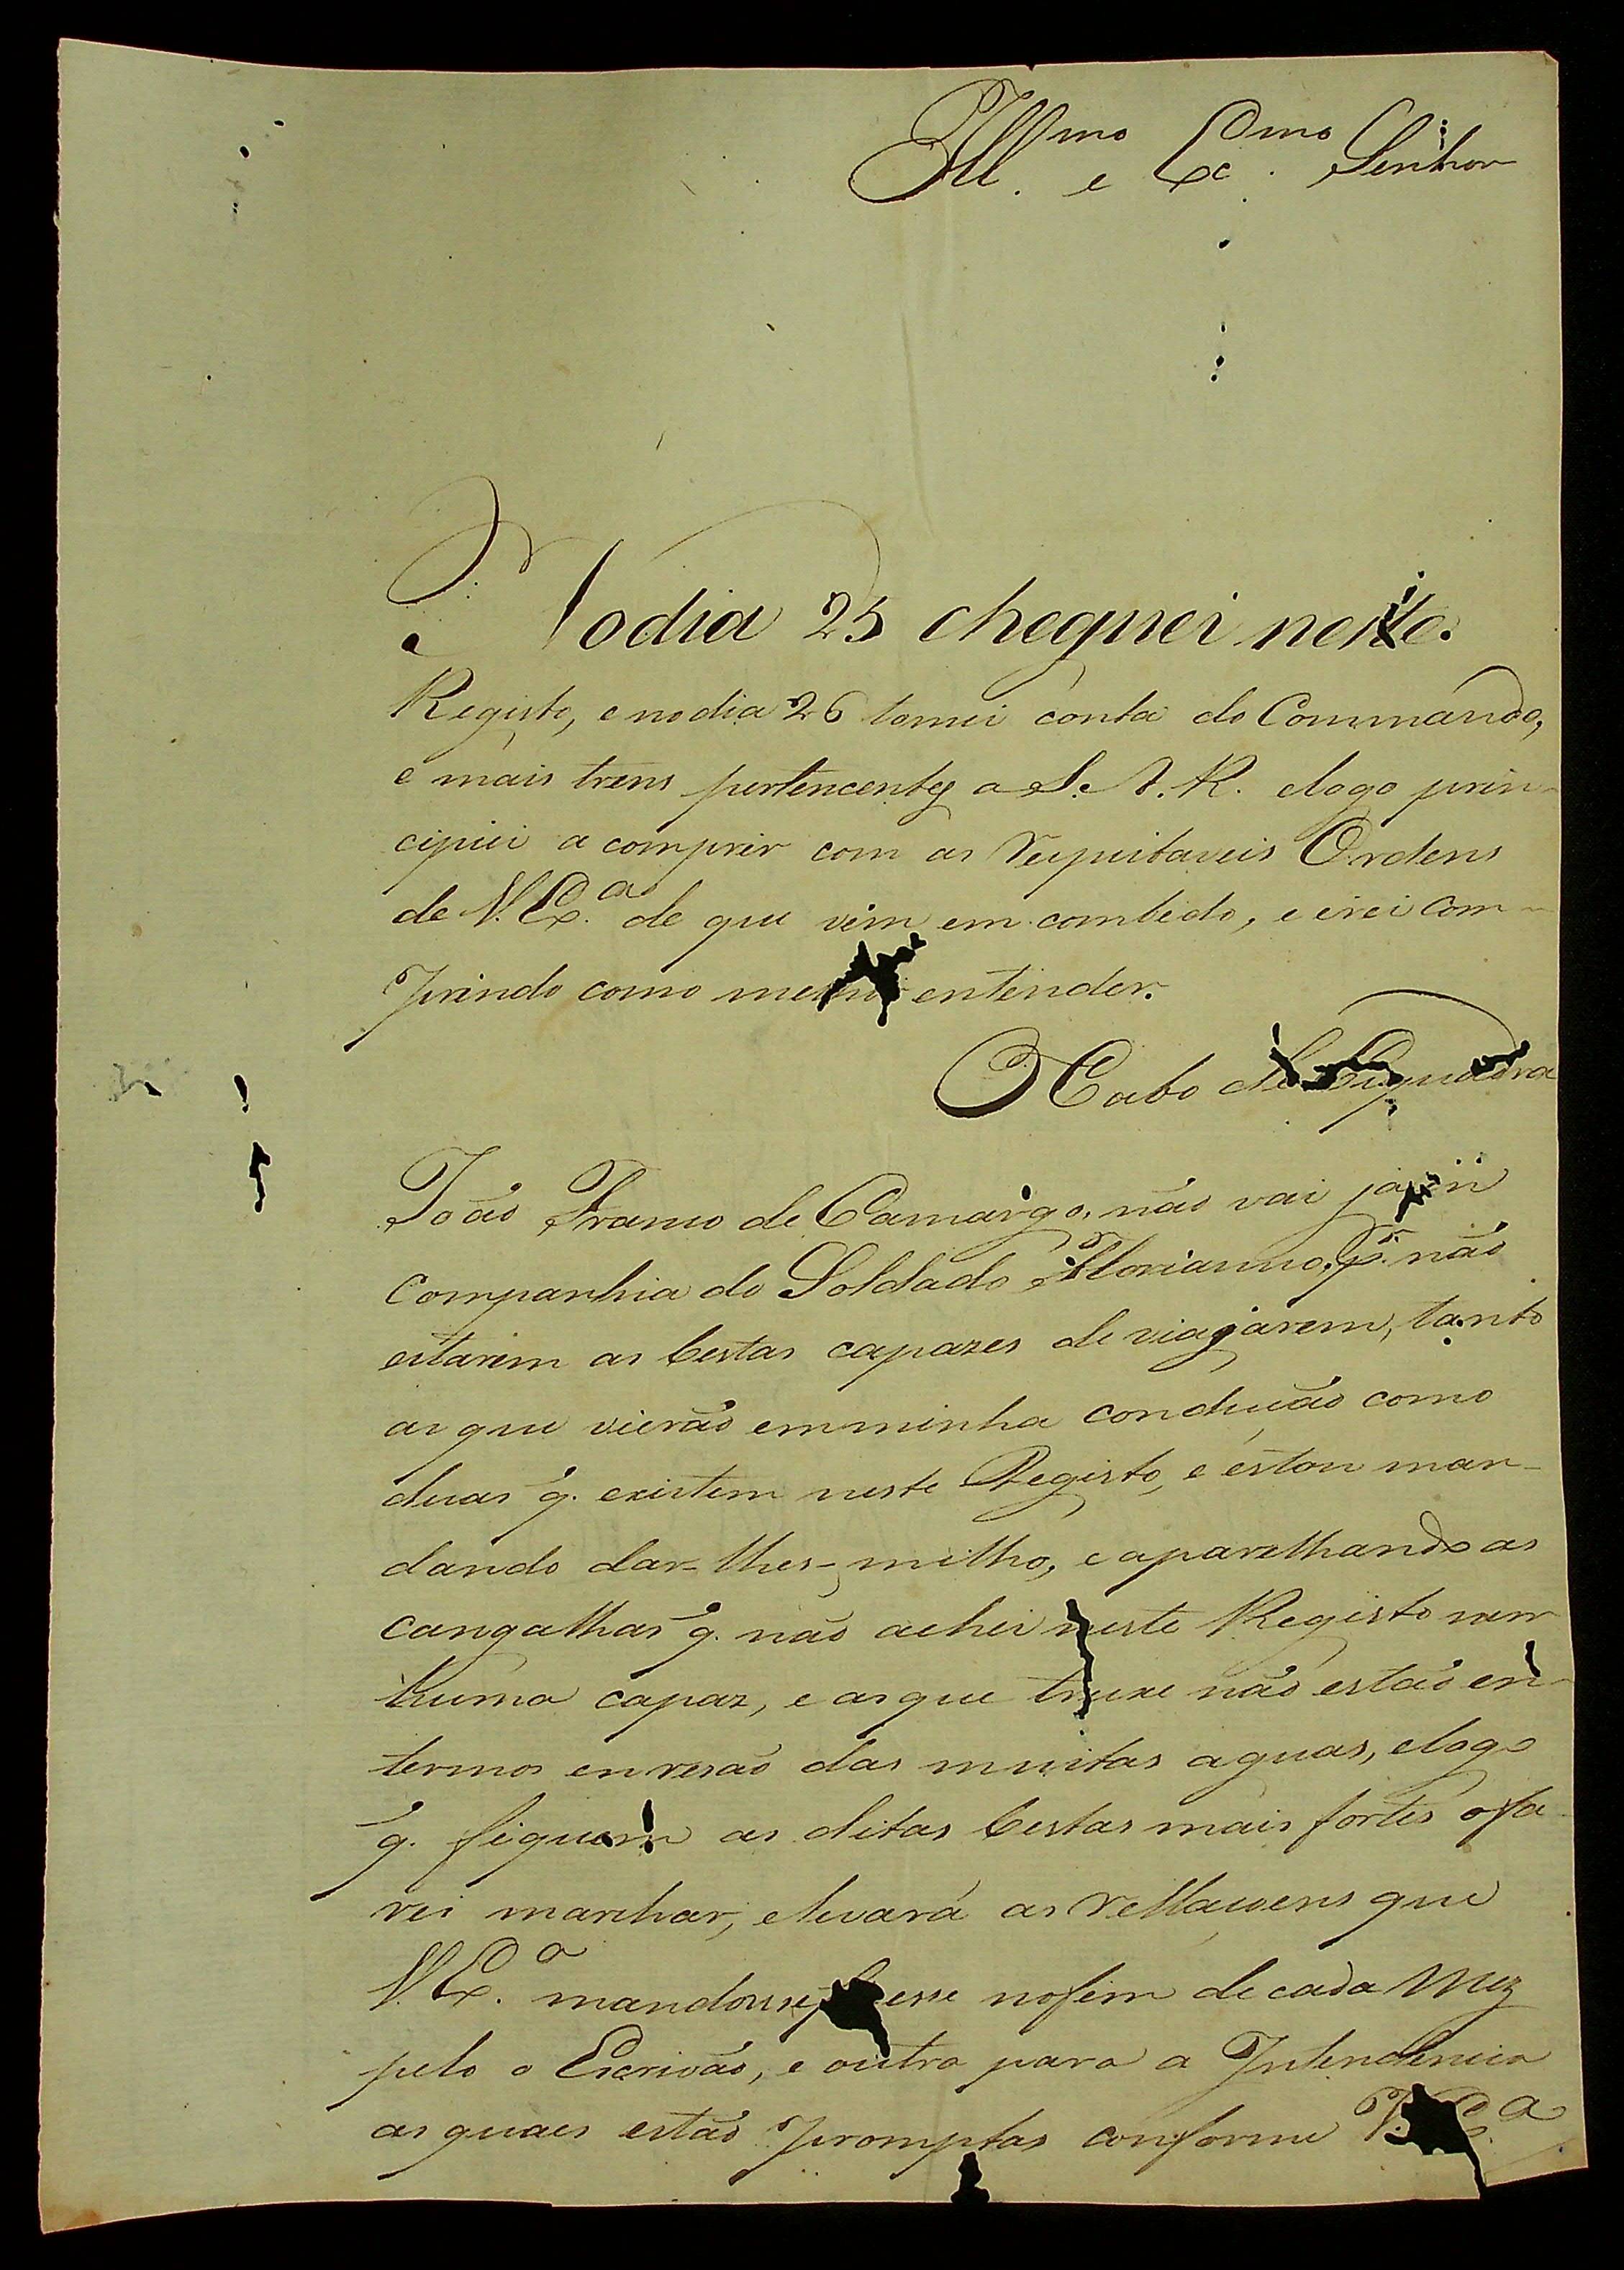 Ill.mo e Ex.mo Senhor
No dia 25 cheguei neste
Registo, e no dia 26 tomei conta do Commando,
e mais trens pertencentes a S. A. R. elogo prin-
cipiei a comprir com as respeitaveis Ordens
de V. Ex.a de que vim em combido, e irei com-
prindo como entender.
O Cabo de Esquadra
João Franco de Camargo, não vai ja em
companhia do Soldado Florianno, p.r não
estarem as bestas capazes de viajarem, tanto
as que vierão emminha condução como
duas q̃. existem neste Registo, e estou man-
dando dar-lhes-milho, e aparelhando as
cangalhas q̃. não achei neste Registo nem
huma capaz, e as que truxe não estão en
termos enresão das muitas aguas, elogo
q̃. fiquem as ditas bestas mais fortes ofa-
rei marchar, elevará as rellaçoens que
V. Ex.a mandou esse nofim de cada Mez
pelo o Escrivão, e outra para a Intendencia
as quaes estão promptas conforme V. Ex.a